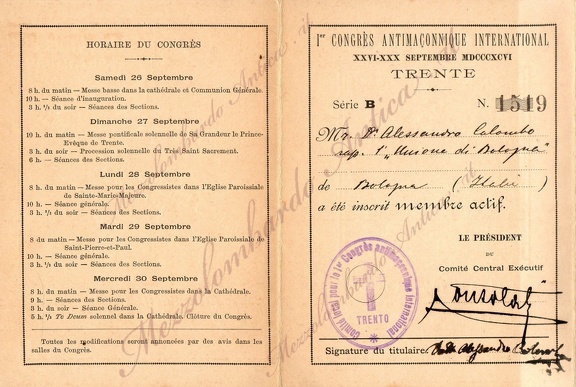 HORAIRE DU CONGRÈS
Samedi 26 Septembre
8 h. du matin – Messe basse dans la cathédrale et Communion Générale.
10 h. – Séance d'inauguration.
3 h. ¹/₂ du soir – Séances des Sections.
Dimanche 27 Septembre
10 h. du matin – Messe pontificale solennelle de Sa Grandeur le Prince-
Evêque de Trente.
3 h. du soir – Procession solennelle du Très Saint Sacrement.
6 h. – Séances des Sections.
Lundi 28 Septembre
8 h. du matin – Messe pour les Congressistes dans l'Eglise Paroissiale
de Sainte-Marie-Majeure.
10 h. – Séance générale.
3 h. ¹/₂ du soir – Séances des Sections.
Mardi 29 Septembre
8 du matin – Messe pour les Congressistes dans l'Eglise Paroissiale de
Saint-Pierre-et-Paul.
10 h. – Séance générale.
3 h. ¹/₂ du soir – Séances des Sections.
Mercredi 30 Septembre
8 h. du matin – Messe pour les Congressistes dans la Cathédrale.
9 h. – Séances des Sections.
3 h. du soir – Séance Générale.
5 h. ¹/₂ Te Deum solennel dans la Cathédrale. Clôture du Congrès.
Toutes les modifications seront annoncées par des avis dans les
salles du Congrès.
Iᵉʳ CONGRÈS ANTIMAÇONNIQUE INTERNATIONAL
XXVI-XXX SEPTEMBRE MDCCCXCVI
TRENTE
Série B N. 1519
Mr. Dr. Alessandro Colombo
rap. l' „Unione di Bologna"
de Bologna (Italie)
a été inscrit membre actif.
LE PRÉSIDENT
DU
Comité Central Exécutif
Congrès antimaçonnique international
TRENTO
Signature du titulaire: Dott. Alessandro Colombo
Mezzolombardo Antica .it
Mezzolombardo Antica .it